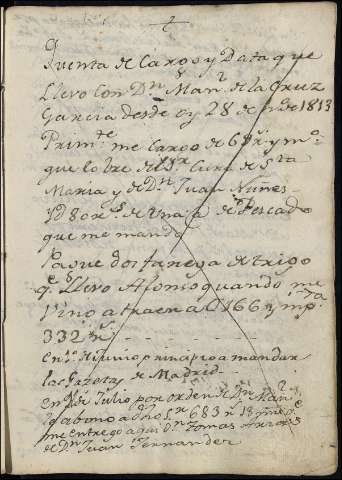 Quenta de Cargo y Data que
Llevo con Dn. Man.l de la Cruz
Garcia desde oy 28 de de 1813
Prim.te me cargo de 68 r.s y m.o
que cobre del Sr. Cura de Sta
Maria y de Dn. Juan Nuñes
Yd 80 r.s de una a de Pescado
que me mandó
Pague dos fanegas de trigo
q.e Llevo Alfonso quando me
vino a traer a 166 y impta
332 r.s
en 1.o de junio principio a mandar
las Gazetas de Madrid
en de Julio por orden de Dn. Man.l
le abono a dho S.r 683 r.s 18 m que
me entregó aqui Dn. Tomas
de Dn. Juan Fernandez